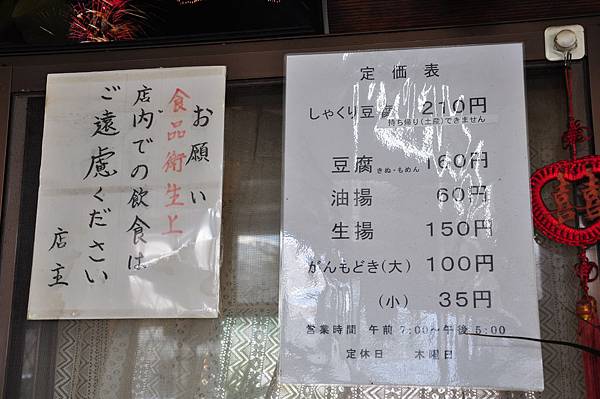 お願い
食品衛生上
店内での飲食は
ご遠慮ください
店主
定価表
しゃくり豆腐 210円
持ち帰り(土産)できません
豆腐 きぬ・もめん 160円
油揚 60円
生揚 150円
がんもどき(大) 100円
(小) 35円
営業時間 午前 7:00～午後 5:00
定休日 木曜日
囍